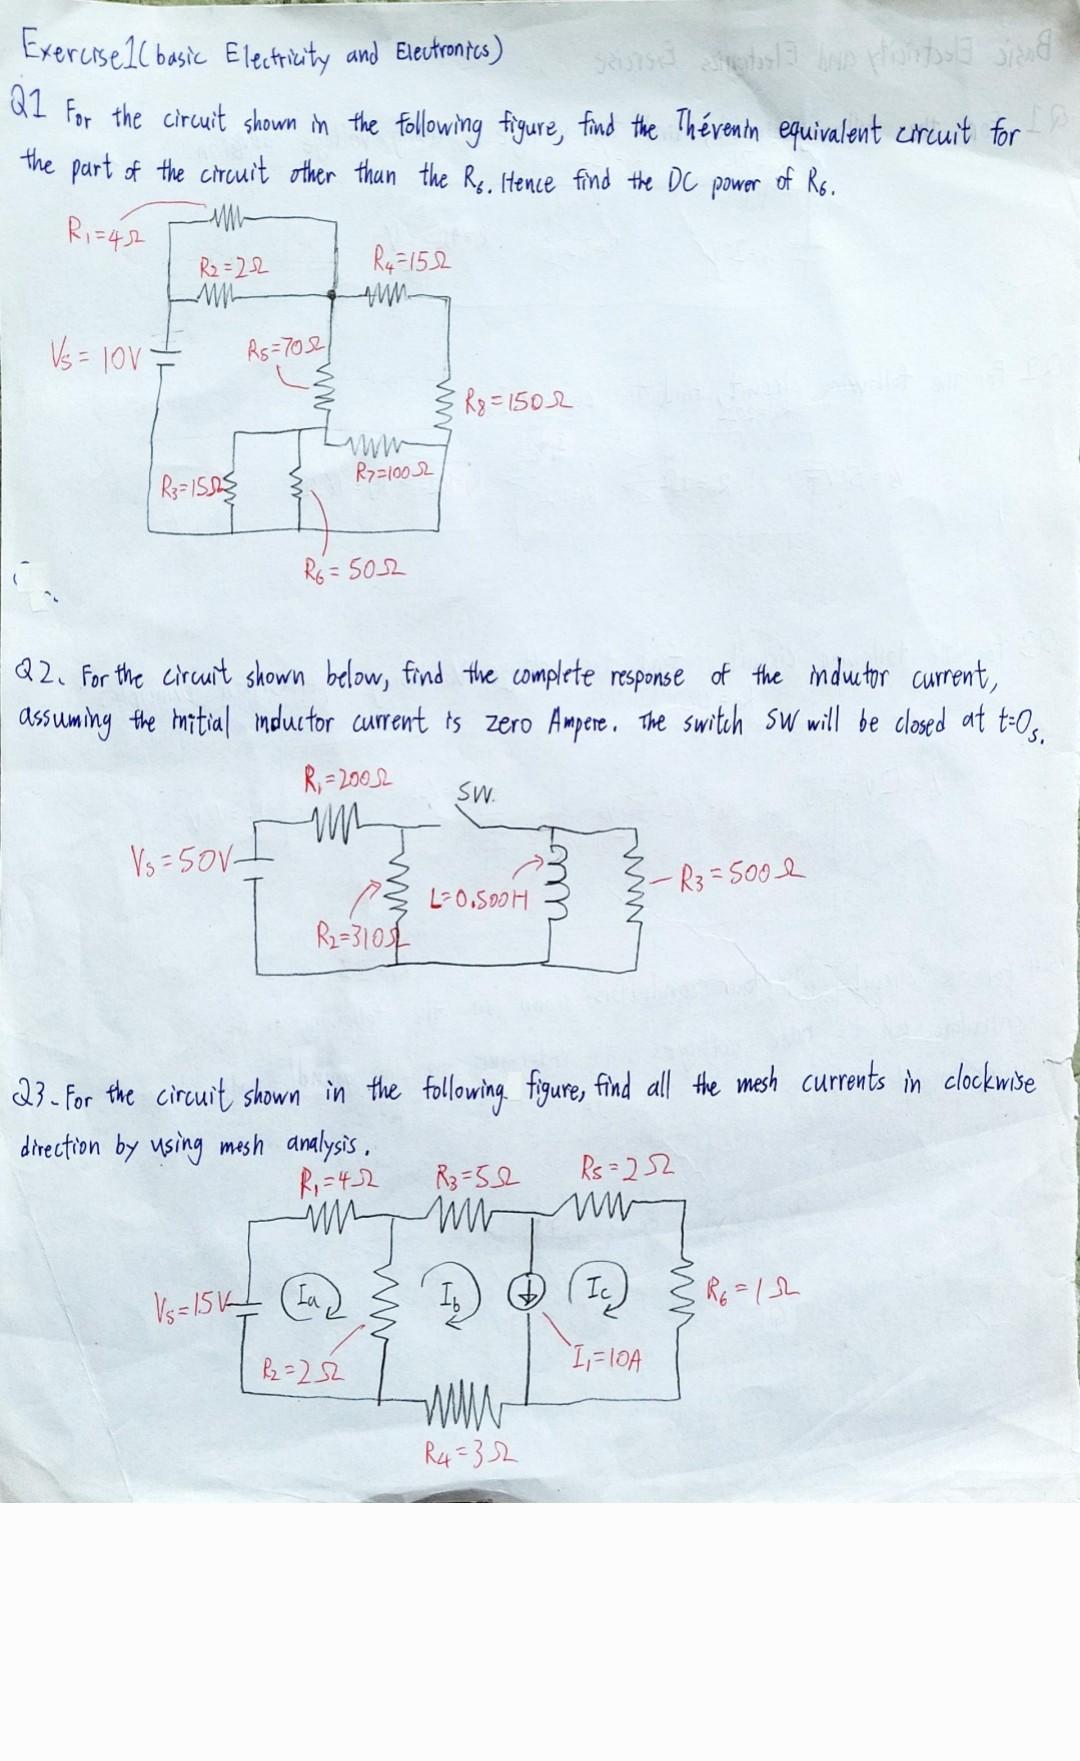 Exercise1(basic Electricity and Electronics)
Q1 For the circuit shown in the following figure, find the Thévenin equivalent circuit for
the part of the circuit other than the R6. Hence find the DC power of R6.
R1=4Ω
R2=2Ω
R4=15Ω
Vs=10V
R5=70Ω
R8=150Ω
R3=15Ω
R7=100Ω
R6=50Ω
Q2. For the circuit shown below, find the complete response of the inductor current,
assuming the initial inductor current is zero Ampere. The switch SW will be closed at t=0s.
R1=200Ω
SW.
Vs=50V
L=0.500H
R3=500Ω
R2=310Ω
Q3. For the circuit shown in the following figure, find all the mesh currents in clockwise
direction by using mesh analysis.
R1=4Ω
R3=5Ω
R5=2Ω
Vs=15V
Ia
Ib
Ic
R6=1Ω
R2=2Ω
I1=10A
R4=3Ω